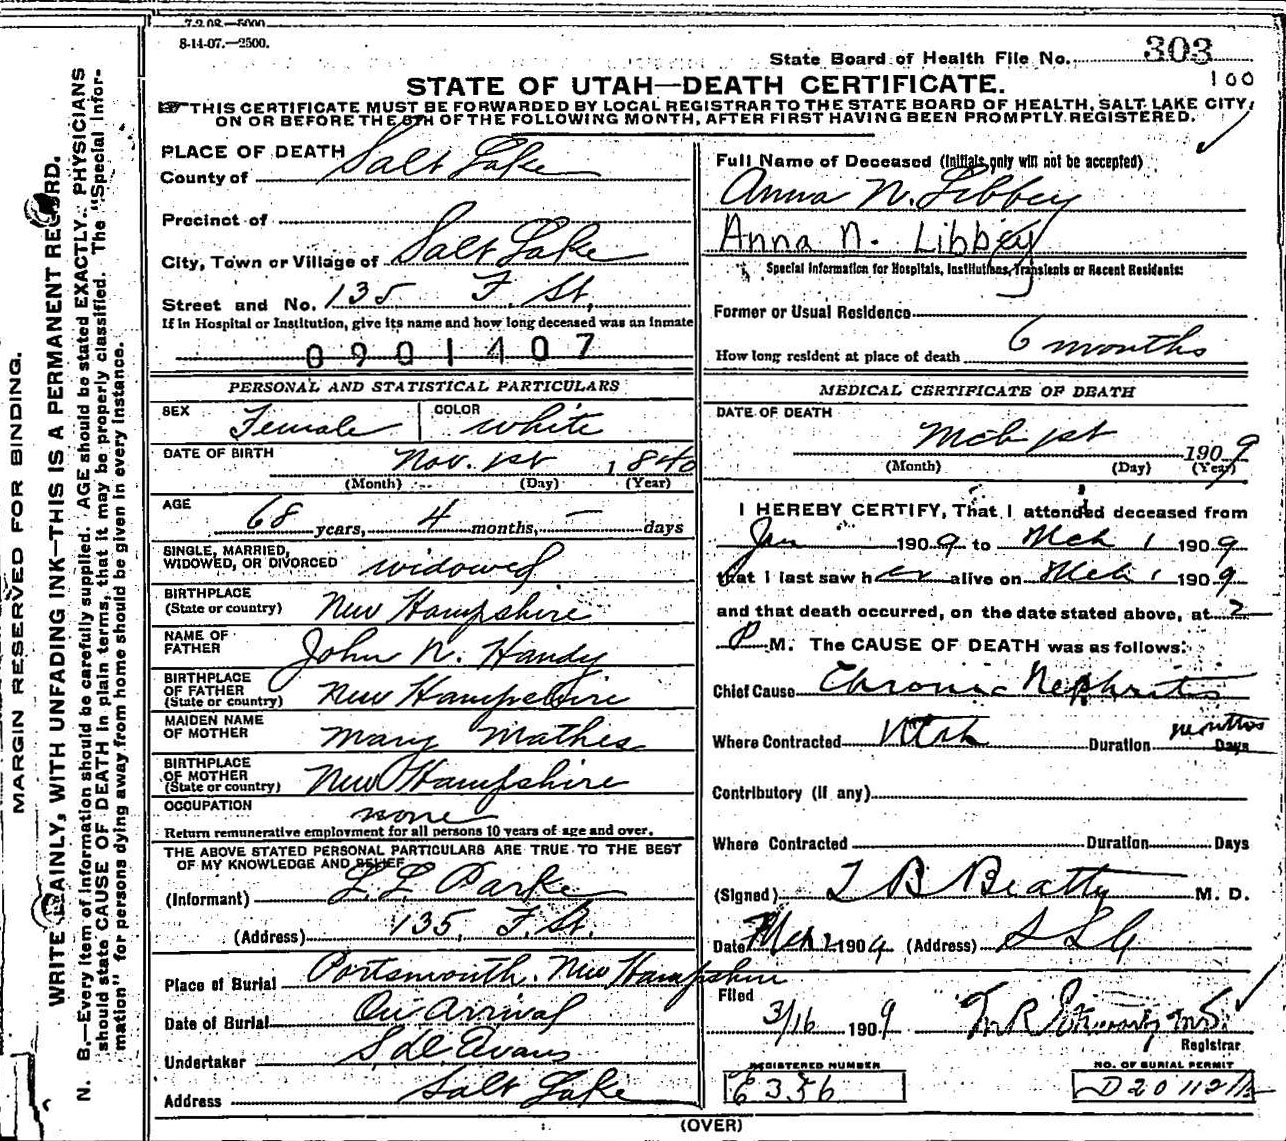 7-2-08.—5000
8-14-07.—2500.
State Board of Health File No. 303
100
STATE OF UTAH—DEATH CERTIFICATE.
THIS CERTIFICATE MUST BE FORWARDED BY LOCAL REGISTRAR TO THE STATE BOARD OF HEALTH, SALT LAKE CITY,
ON OR BEFORE THE 5TH OF THE FOLLOWING MONTH, AFTER FIRST HAVING BEEN PROMPTLY REGISTERED.
PLACE OF DEATH
County of Salt Lake
Precinct of
City, Town or Village of Salt Lake
Street and No. 135 F. St.
If in Hospital or Institution, give its name and how long deceased was an inmate
0901407
PERSONAL AND STATISTICAL PARTICULARS
SEX Female COLOR White
DATE OF BIRTH Nov. 1st 1840
(Month) (Day) (Year)
AGE 68 years, 4 months, — days
SINGLE, MARRIED,
WIDOWED, OR DIVORCED widowed
BIRTHPLACE
(State or country) New Hampshire
NAME OF
FATHER John N. Handy
BIRTHPLACE
OF FATHER
(State or country) New Hampshire
MAIDEN NAME
OF MOTHER Mary Mathes
BIRTHPLACE
OF MOTHER
(State or country) New Hampshire
OCCUPATION none
Return remunerative employment for all persons 10 years of age and over.
THE ABOVE STATED PERSONAL PARTICULARS ARE TRUE TO THE BEST
OF MY KNOWLEDGE AND BELIEF
(Informant) L. L. Parke
(Address) 135, F. St.
Place of Burial Portsmouth, New Hampshire
Date of Burial On Arrival
Undertaker S. D. Evans
Address Salt Lake
Full Name of Deceased (Initials only will not be accepted)
Anna N. Libbey
Anna N. Libbey
Special Information for Hospitals, Institutions, Transients or Recent Residents:
Former or Usual Residence
How long resident at place of death 6 months
MEDICAL CERTIFICATE OF DEATH
DATE OF DEATH
Mch 1st 1909
(Month) (Day) (Year)
I HEREBY CERTIFY, That I attended deceased from
Jan 1909 to Mch 1 1909
that I last saw her alive on Mch 1 1909
and that death occurred, on the date stated above, at 2
P M. The CAUSE OF DEATH was as follows:
Chief Cause Chronic Nephritis
Where Contracted Utah Duration months Days
Contributory (if any)
Where Contracted Duration Days
(Signed) T B Beatty M. D.
Date Mch 1909 (Address) SLC
Filed
3/16 1909
Registrar
REGISTERED NUMBER
E356
NO. OF BURIAL PERMIT
(OVER)
MARGIN RESERVED FOR BINDING.
WRITE PLAINLY, WITH UNFADING INK—THIS IS A PERMANENT RECORD.
N. B.—Every item of information should be carefully supplied. AGE should be stated EXACTLY. PHYSICIANS
should state CAUSE OF DEATH in plain terms, that it may be properly classified. The "Special Infor-
mation" for persons dying away from home should be given in every instance.